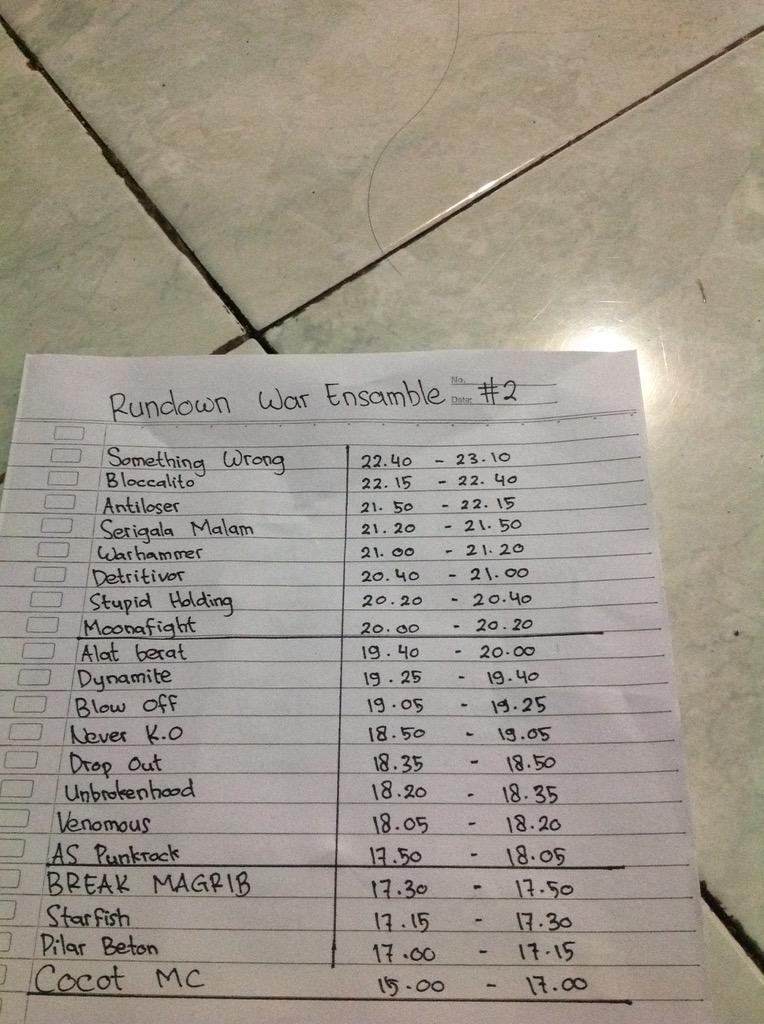 Rundown War Ensamble No. Date: #2
Something Wrong 22.40 - 23.10
Bloccalito 22.15 - 22.40
Antiloser 21.50 - 22.15
Serigala Malam 21.20 - 21.50
Warhammer 21.00 - 21.20
Detritivor 20.40 - 21.00
Stupid Holding 20.20 - 20.40
Moonafight 20.00 - 20.20
Alat berat 19.40 - 20.00
Dynamite 19.25 - 19.40
Blow Off 19.05 - 19.25
Never K.O 18.50 - 19.05
Drop Out 18.35 - 18.50
Unbrokenhood 18.20 - 18.35
Venomous 18.05 - 18.20
AS Punkrock 17.50 - 18.05
BREAK MAGRIB 17.30 - 17.50
Starfish 17.15 - 17.30
Pilar Beton 17.00 - 17.15
Cocot MC 15.00 - 17.00